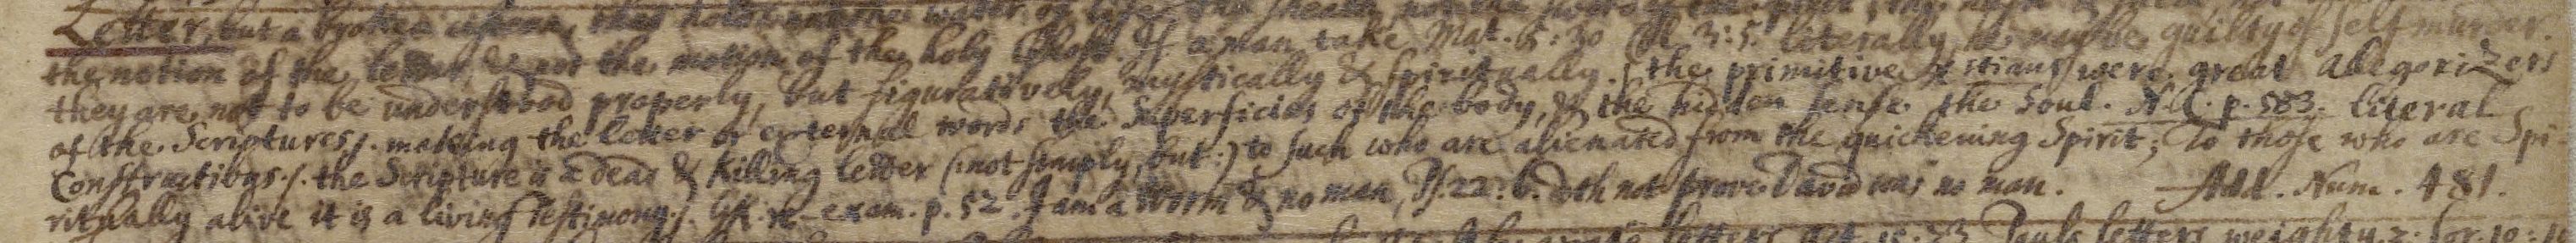 Letter, but a broken cistern, that holds
the notion of the letter, & not the motion of the holy Ghost. If a man take Mat. 5:30 Col. 3:5. literally, he may be guilty of self murder.
they are not to be understood properly, but figuratively, mystically & spiritually. /. the primitive Xstians were great Allegorizers
of the Scriptures /. making the letter or external words the Superficies of the body, & the hidden sense the Soul. p. 583. literal
Constructions. /. the Scripture is a dead & killing letter (not simply, but:) to such who are alienated from the quickening Spirit; To those who are Spi
ritually alive it is a living testimony /. GK. re-exam. p. 52. I am a worm & no man, Ps. 22:6. doth not prove David was no man. Add. Num. 481.
letters Pauls letters weighty 2. Cor. 10: